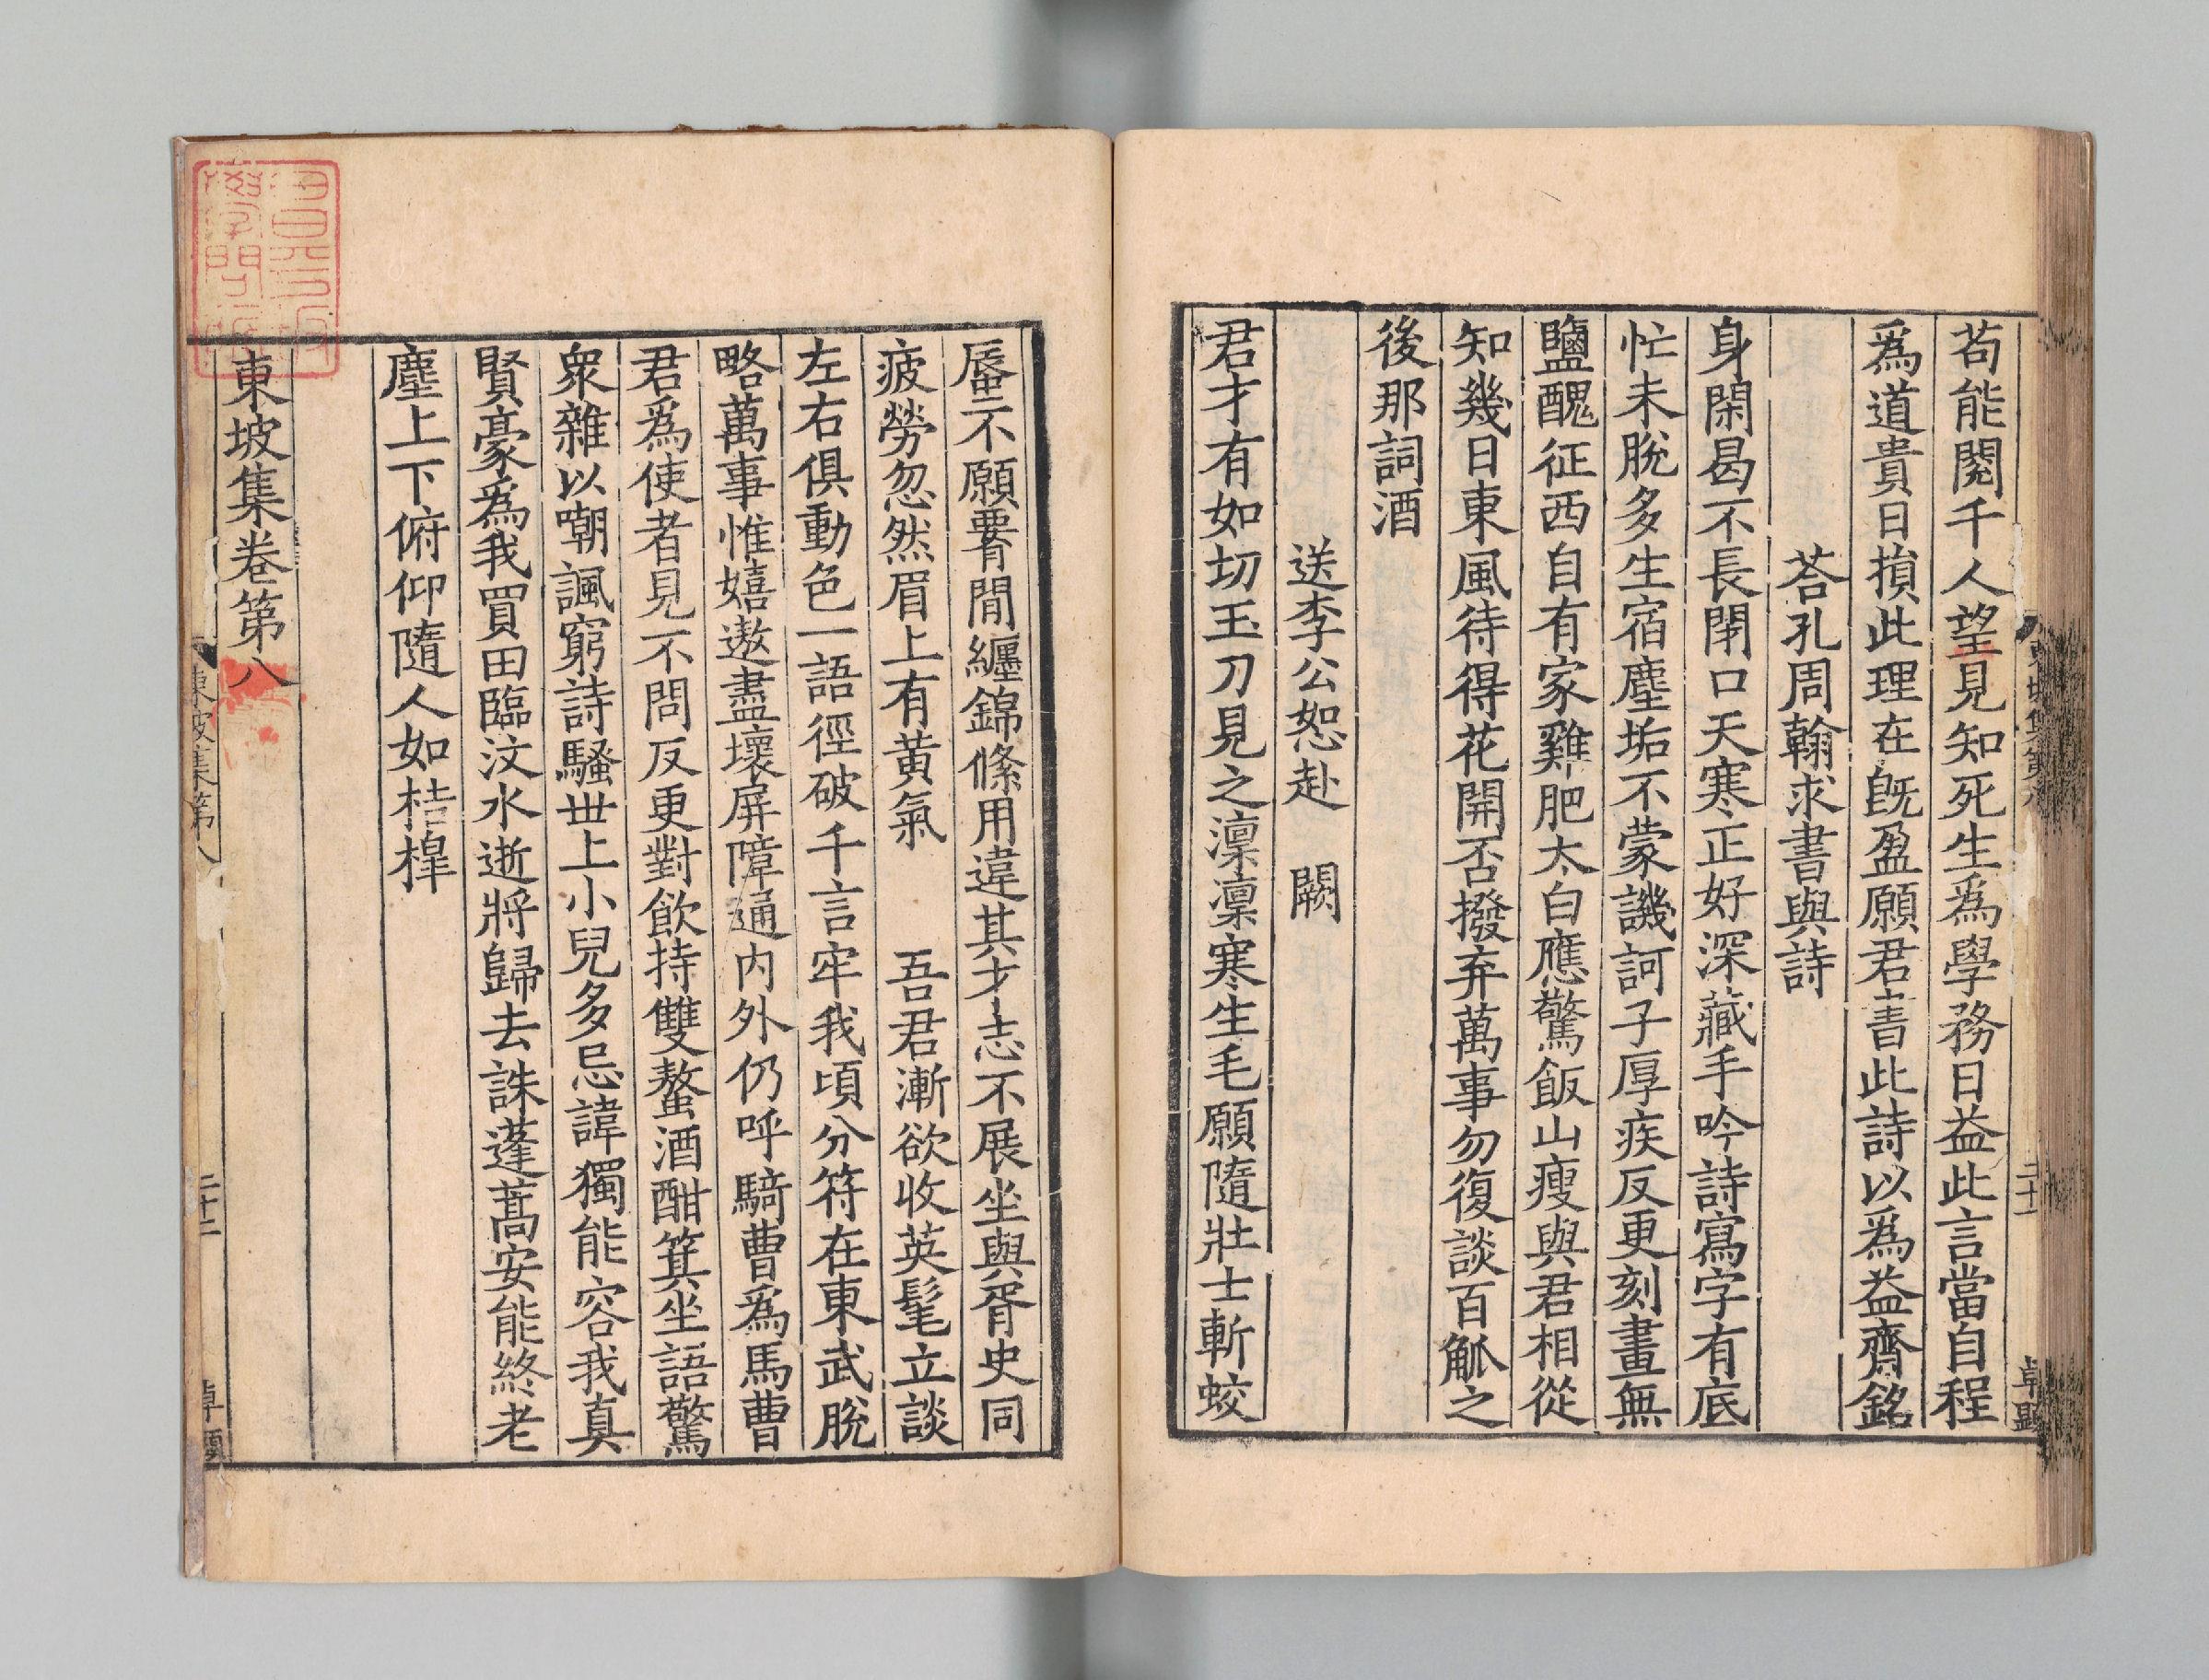 苟能閱千人望見知死生爲學務日益此言當自程
爲道貴日損此理在旣盈願君書此詩以爲益齋銘
荅孔周翰求書與詩
身閑曷不長閉口天寒正好深藏手吟詩寫字有底
忙未脫多生宿塵垢不蒙譏訶子厚疾反更刻畫無
鹽醜征西自有家雞肥太白應驚飯山瘦與君相從
知幾日東風待得花開否撥弃萬事勿復談百觚之
後那詞酒
送李公恕赴 闕
君才有如切玉刀見之凛凛寒生毛願隨壯士斬蛟
蜃不願腰間纏錦絛用違其才志不展坐與胥史同
疲勞忽然眉上有黃氣 吾君漸欲收英髦立談
左右俱動色一語徑破千言牢我頃分符在東武脫
略萬事惟嬉遨盡壞屏障通內外仍呼騎曹爲馬曹
君爲使者見不問反更對飲持雙螯酒酣箕坐語驚
衆雜以嘲諷窮詩騷世上小兒多忌諱獨能容我真
賢豪爲我買田臨汶水逝將歸去誅蓬蒿安能終老
塵上下俯仰隨人如桔橰
東坡集卷第八
東坡集第八
二十二